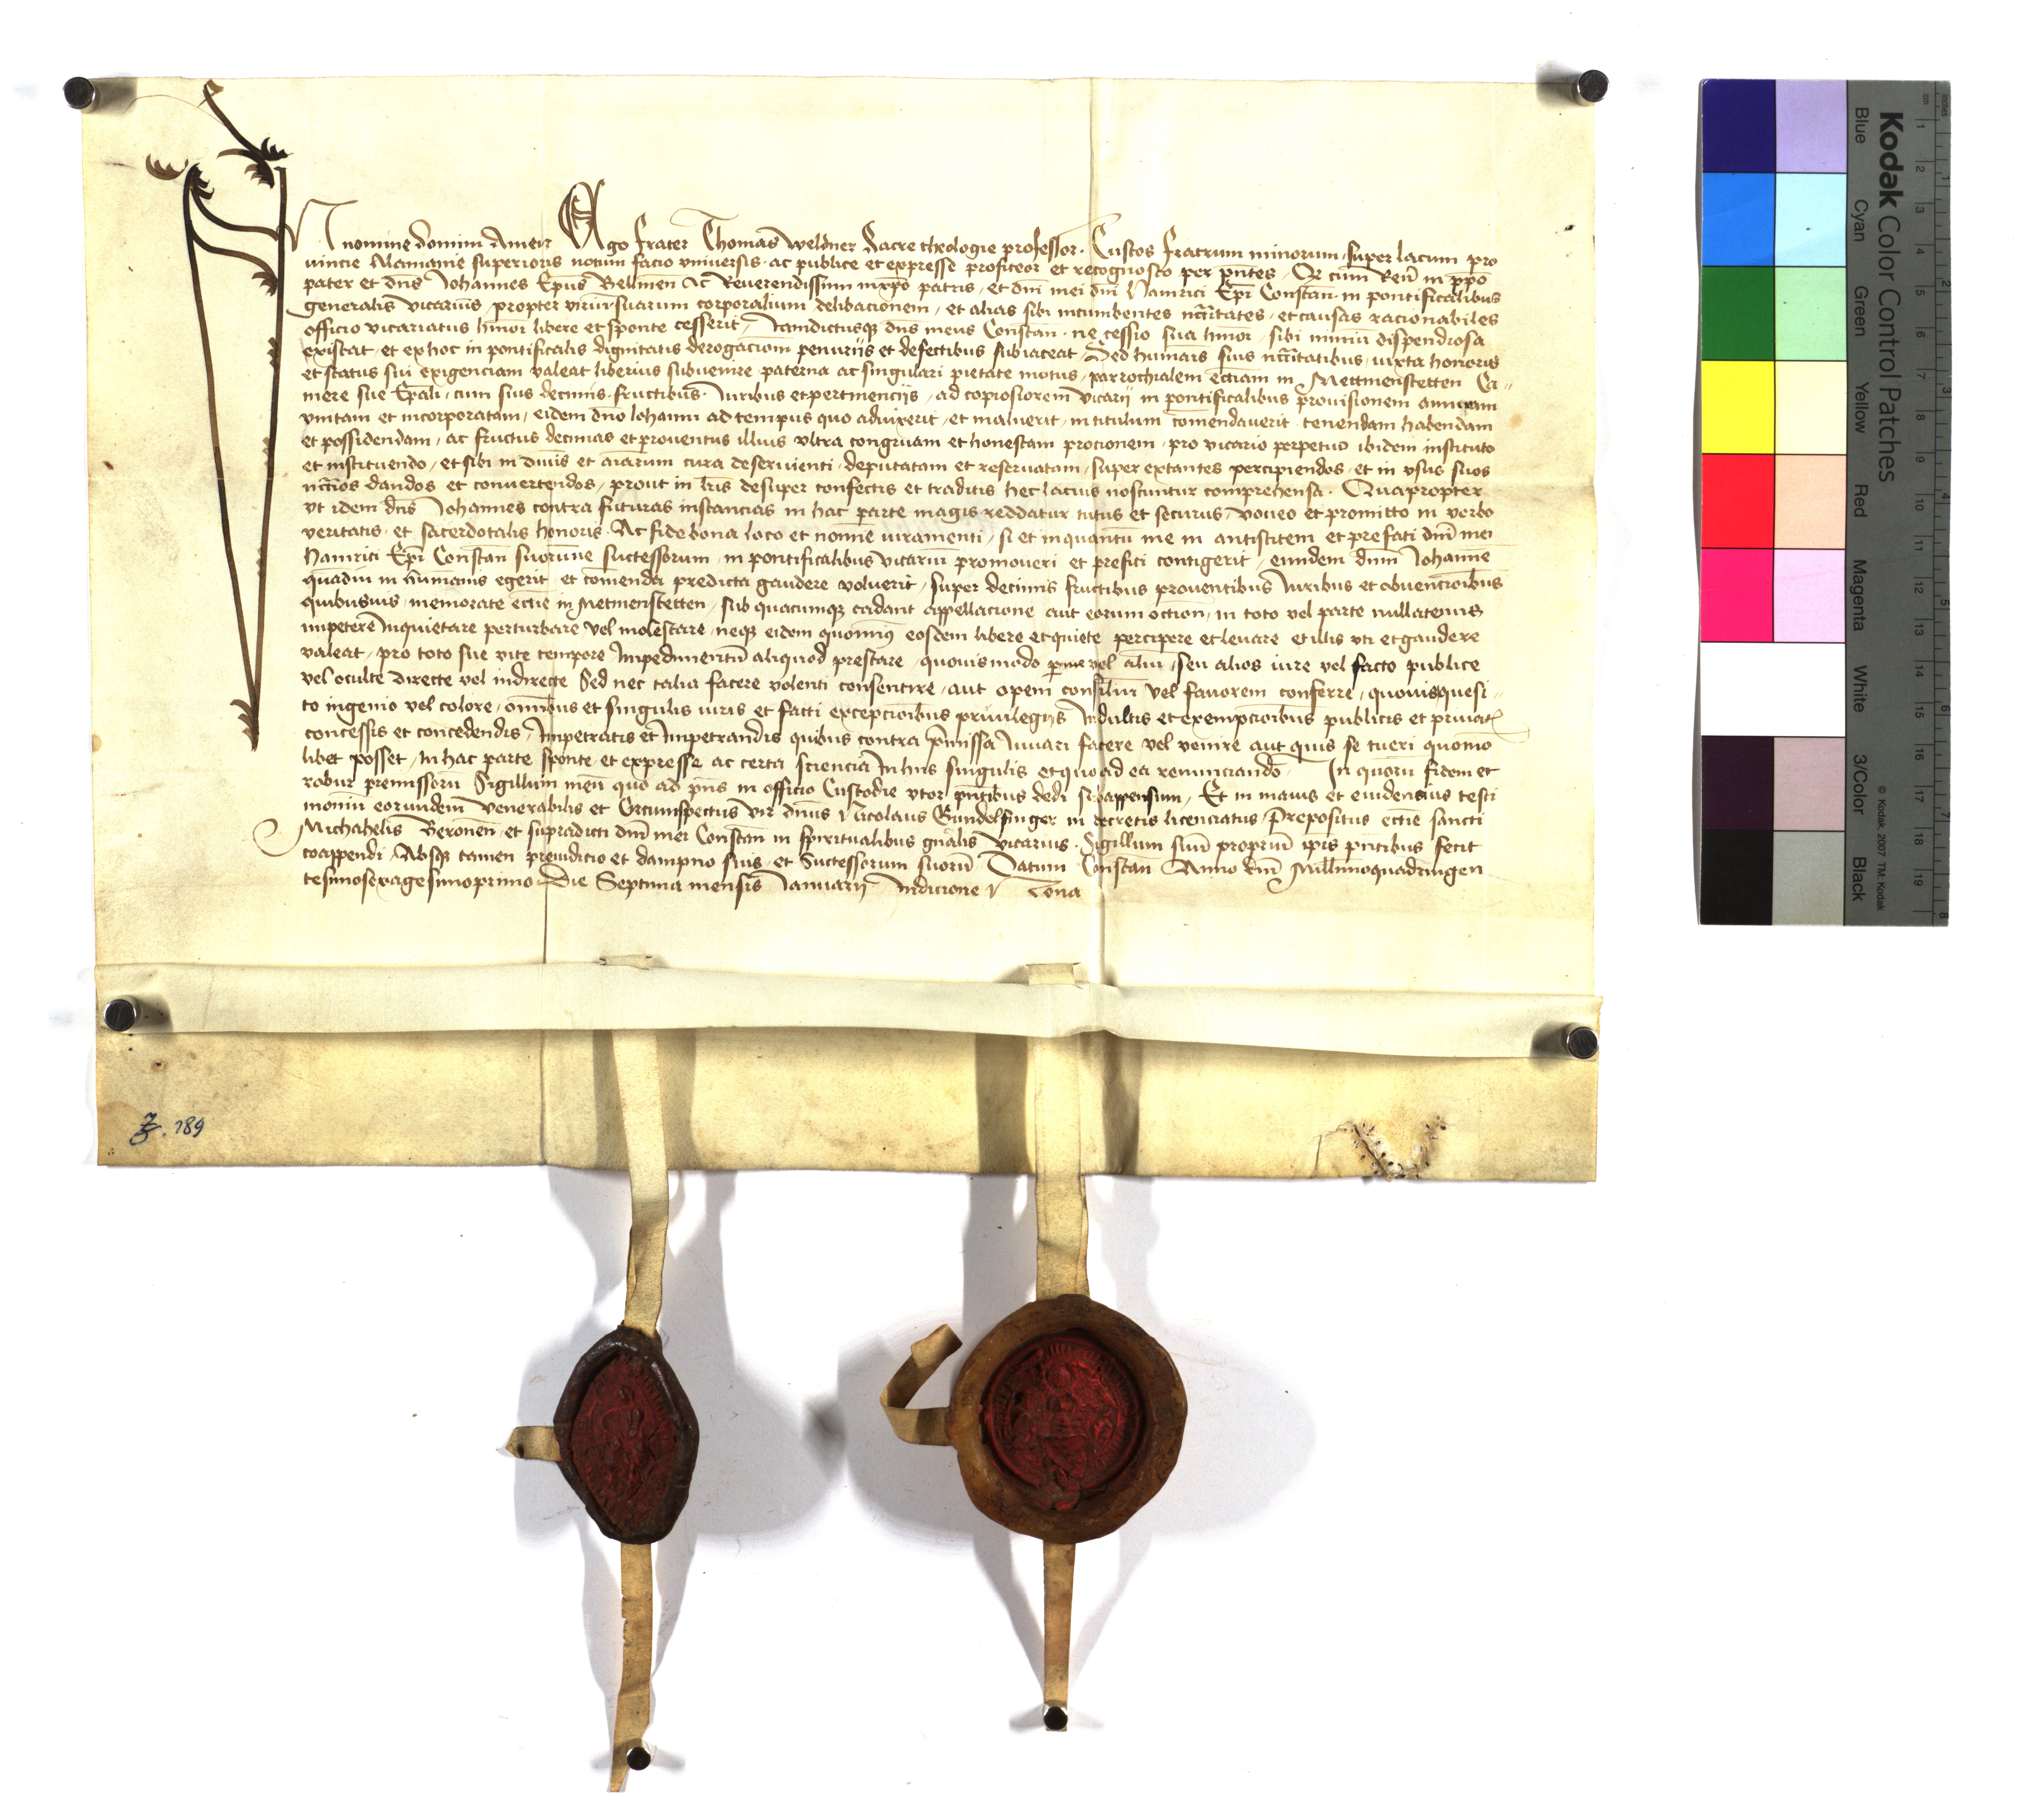 In nomine domini Amen Ego frater Thomas Weldner Sacre theologie professor. Custos fratrum minorum super lacum pro
uincie Alamanie superioris notum facio vniuersis ac publice et expresse profiteor et recognosco per pñtes, Qr cum Reñ in xp̄o
pater et dñs Johannes Ep̄us Bellineñ Ac Reuerendissimi in xp̄o patris, et dñi mei dñi Hainrici Ep̄i Constañ in pontificalibus
generalis vicarius, propter viriū suarum corporalium debilitacionem, et alias sibi incumbentes nccitates, et causas racionabiles
officio vicariatus hmoi libere et sponte cesserit, Iamdictusqz dñs meus Constañ. ne cessio sua hmoi sibi nimiū dispendiosa
existat, et ex hoc in pontificalis dignitatis derogacionem penuriis et defectibus subiaceat, Sed humanis suis nccitatibus, iuxta honoris
et status sui exigenciam valeat liberius subuenire paterna ac singulari pietate motus, parrochialem eccliam in Mettmenstetten Ca-
mere sue Ep̄ali, cum suis decimis fructibus Iuribus et pertinenciis, ad copiosiorem vicarij in pontificalibus prouisionem
vnitam et incorporatam, eidem dño Iohanni ad tempus quo aduixerit, et maluerit, in titulum comendauerit tenendam habendam
et possidendam, ac fructus decimas et prouentus illius vltra congruam et honestam procionem, pro vicario perpetuo ibidem instituto
et instituendo, et sibi in diuis et aiarum cura deseruienti, deputatam et reseruatam, super extantes percipiendos, et in vsus suos
nccios dandos et conuertendos, prout in lris desuper confectis et traditis hec lacius noscuntur comprehensa. Quapropter
vt idem dñs Johannes contra futuras instancias in hac parte magis reddatur tutus et securus, voueo et promitto in verbo
veritatis, et sacerdotalis honoris. Ac fide bona loco et nomine iuramenti, si et inquantū me in antistitem et prefati dñi mei
Hainrici Ep̄i Constañ suorumue successorum, in pontificalibus vicariū promoueri et prefici contigerit, eundem dñm Iohannē
quādiu in humanis egerit et comenda predicta gaudere voluerit, super decimis fructibus prouentibus Iuribus et obuencioibus
quibusuis, memorate ecclie in Metmenstetten, sub quacumqz cadant appellacione aut eorum in toto vel parte nullatenus
impetere Inquietare perturbare vel molestare, neqz eidem quominus eosdem libere et quiete percipere et leuare et illis vti et gaudere
valeat, pro toto sue vite tempore Impedimentū aliquod prestare, quouismodo per me vel aliū, seu alios iure vel facto publice
vel oculte directe vel indirecte Sed nec talia facere volenti consentire, aut opem consiliū vel fauorem conferre, quouis quesi-
to ingenio vel colore, omibus et singulis iuris et facti excepcioibus priuilegijs Indultis et exempcioibus publicis et priuatis
concessis et concedendis, Impetratis et Impetrandis quibus contra pmissa Iuuari facere vel venire aut quis se tueri quomo
libet posset, In hac parte sponte et expresse ac certa sciencia In hiis singulis et quo ad ea renunciando. In quorū fidem et
robur premissorū Sigillum meū quo ad pñs in officio Custodie vtor pñtibus dedi subappensum, Et in maius et euidencius testi
moniū eorundem venerabilis et Circumspectus vir dñus Nicolaus Gundelfinger in decretis licenciatus, Prepositus ecclie sancti
Michahelis Beroneñ, et supradicti dñi mei Constañ in spiritualibus gñalis vicarius. Sigillum suū propriū ip̄is pñtibus fecit
coappendi, Absqz tamen preiudicio et dampno suis, et Successorum suorū Datum Constañ Anno dñi Millimoquadringen
tesimosexagesimoprimo, Die Septima mensis Ianuarij Indicione Nona
Z. 189
Kodak Color Control Patches
Blue Cyan Green Yellow Red Magenta White 3/Color Black
© Kodak, 2007 TM: Kodak
cm 1 2 3 4 5 6 7 8 9 10 11 12 13 14 15 16 17 18 19
inches 1 2 3 4 5 6 7 8